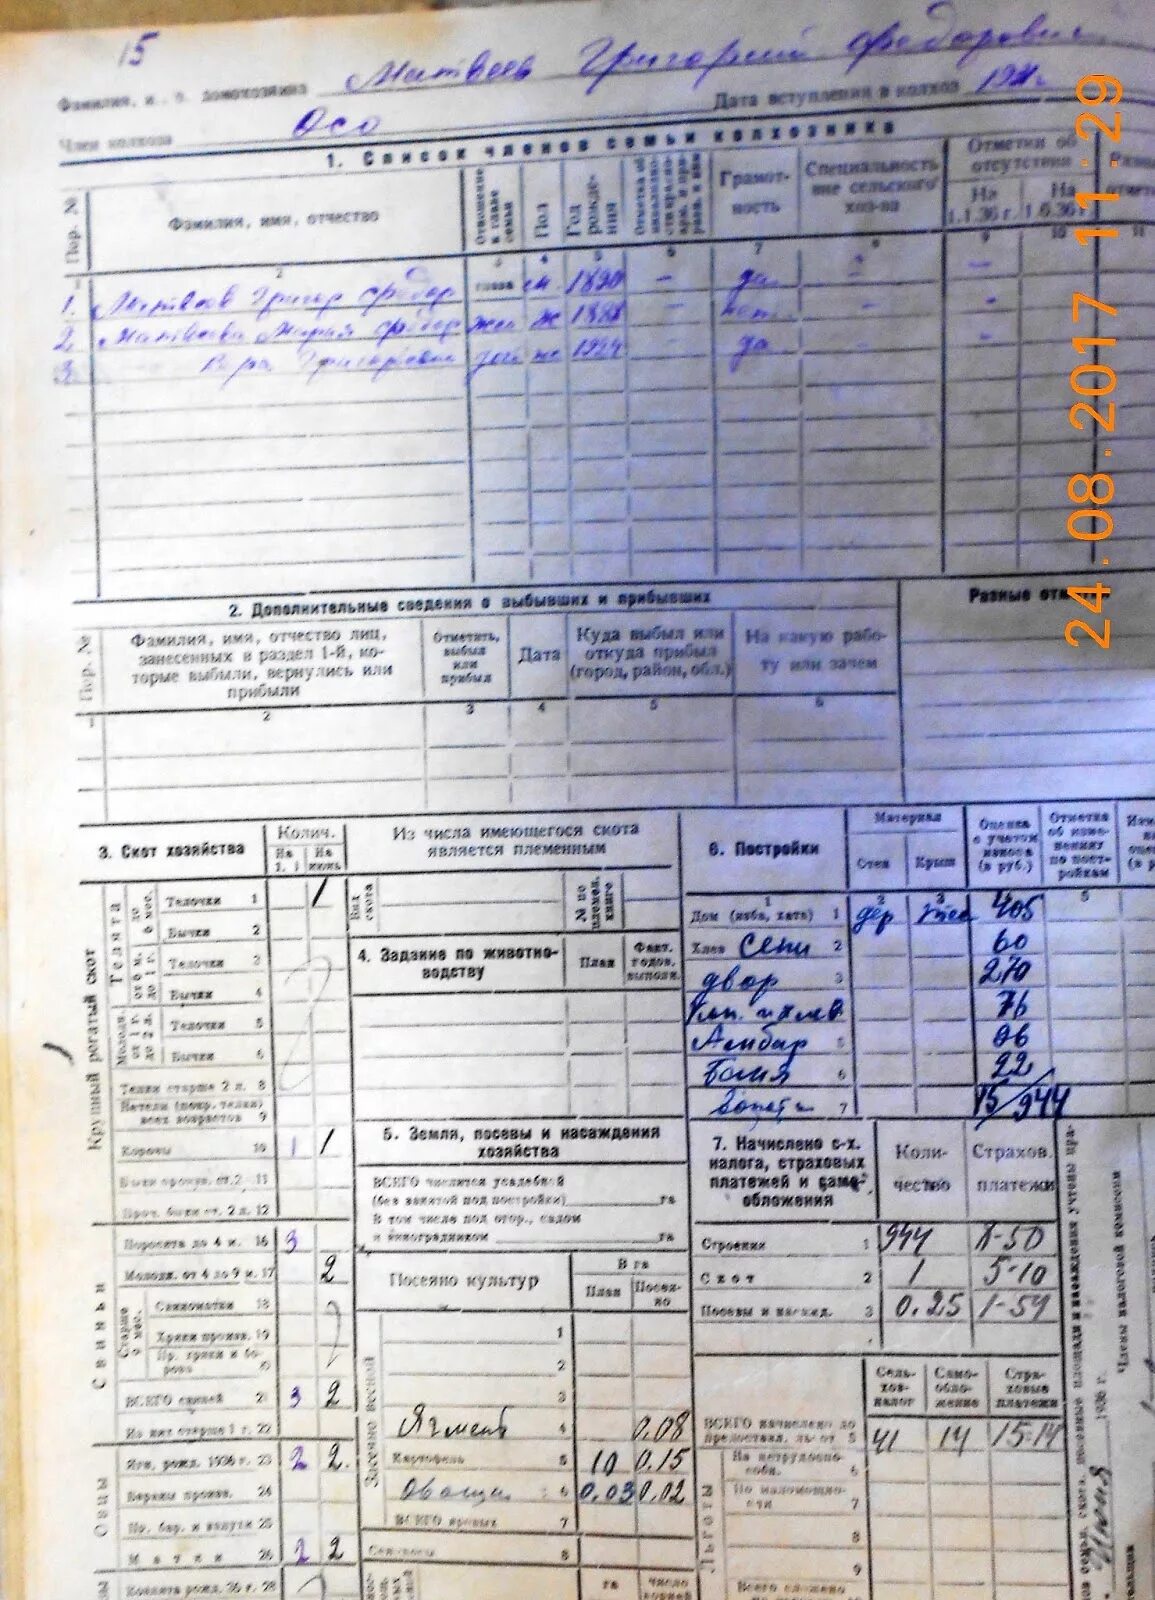 15
Фамилия, и., о. домохозяина Матвеев Григорий Федорович
Член колхоза Осо Дата вступления в колхоз
1. Список членов семьи колхозника
Пор. № Фамилия, имя, отчество Отношение к главе семьи Пол Год рождения Грамотность Специальность вне сельского хоз-ва Отметки об отсутствии На 1.1.36 г. На 1.6.36 г.
2 3 4 5 6 7 8 9 10 11
1. Матвеев Григор Федор глава м. 1890 — да — —
2. Матвеева Мария Федор жен ж - нет. - -
3. Вера Григорьевна ж 1924 - да - -
2. Дополнительные сведения о выбывших и прибывших
Разные отм
Пор. № Фамилия, имя, отчество лиц, занесенных в раздел 1-й, которые выбыли, вернулись или прибыли Отметить, выбыл или прибыл Дата Куда выбыл или откуда прибыл (город, район, обл.) На какую работу или зачем
1 2 3 4 5 6
3. Скот хозяйства Колич. На 1. 1 На июнь
Крупный рогатый скот
Телята до 6 мес. Телочки 1 1
Бычки 2
от 6 м. до 1 г. Телочки 3
Бычки 4
Молодн. от 1 г. до 2 л. Телочки 5
Бычки 6
Телки старше 2 л. 8
Нетели (покр. телки) всех возрастов 9
Коровы 10 1 1
Быки произв. ст. 2 л. 11
Проч. быки ст. 2 л. 12
Свиньи
Поросята до 4 м. 16 3
Молодн. от 4 до 9 м. 17 2
Старше 9 мес. Свиноматки 18
Хряки произв. 19
Пр. хряки и борова 20
ВСЕГО свиней 21 3 2
Из них старше 1 г. 22
Овцы
Ягн. рожд. 1936 г. 23 2 2.
Бараны произв. 24
Пр. бар. и валухи 25
Матки 26 2 2
Козлята рожд. 36 г. 28
Из числа имеющегося скота является племенным
Вид скота № по племен. книге
4. Задание по животноводству План Факт. годов. выполн.
5. Земля, посевы и насаждения хозяйства
ВСЕГО числится усадебной (без занятой под постройки) га
В том числе под огор., садом и виноградником га
Посеяно культур В га План Посеяно
Засеяно весной
1
2
3
Ячмень 4 0.08
Картофель 5 10 0.15
Овощи 6 0.03 0.02
ВСЕГО яровых 7
8
га число корней
6. Постройки Материал Стен Крыш Оценка с учетом износа (в руб.) Отметка об изменении по постройкам
1 2 3 4 5
Дом (изба, хата) 1 дер тес 405
Хлев Сени 2 60
двор 3 270
76
Амбар 5 96
Баня 6 22
7 15/944
7. Начислено с-х. налога, страховых платежей и самообложения Количество Страхов. платежи
Строения 1 944 8-50
Скот 2 1 5-10
Посевы и насажд. 3 0.25 1-54
Сельхозналог Самообложение Страховые платежи
ВСЕГО начислено до предоставл. льгот 5 41 14 15-14
Льготы
На нетрудоспособн. 6
По маломощности 7
8
9
Всего сложено
Члены налоговой комиссии
1936 г.
Июня
24.08.2017 11:29